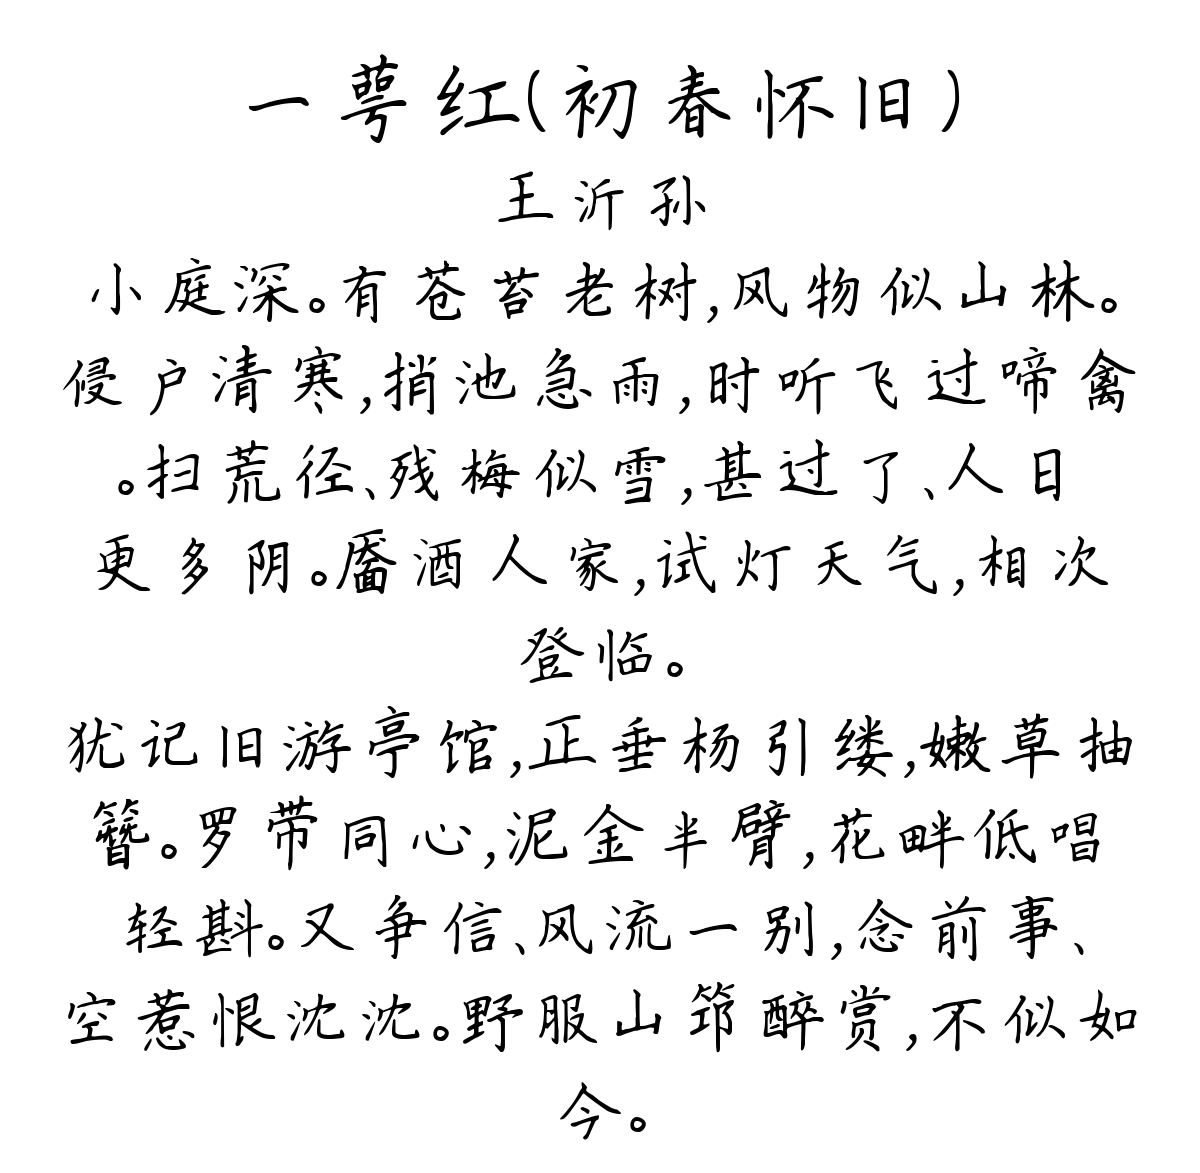 一萼红(初春怀旧)
王沂孙
小庭深。有苍苔老树,风物似山林。
侵户清寒,捎池急雨,时听飞过啼禽
。扫荒径、残梅似雪,甚过了、人日
更多阴。靥酒人家,试灯天气,相次
登临。
犹记旧游亭馆,正垂杨引缕,嫩草抽
簪。罗带同心,泥金半臂,花畔低唱
轻斟。又争信、风流一别,念前事、
空惹恨沈沈。野服山筇醉赏,不似如
今。